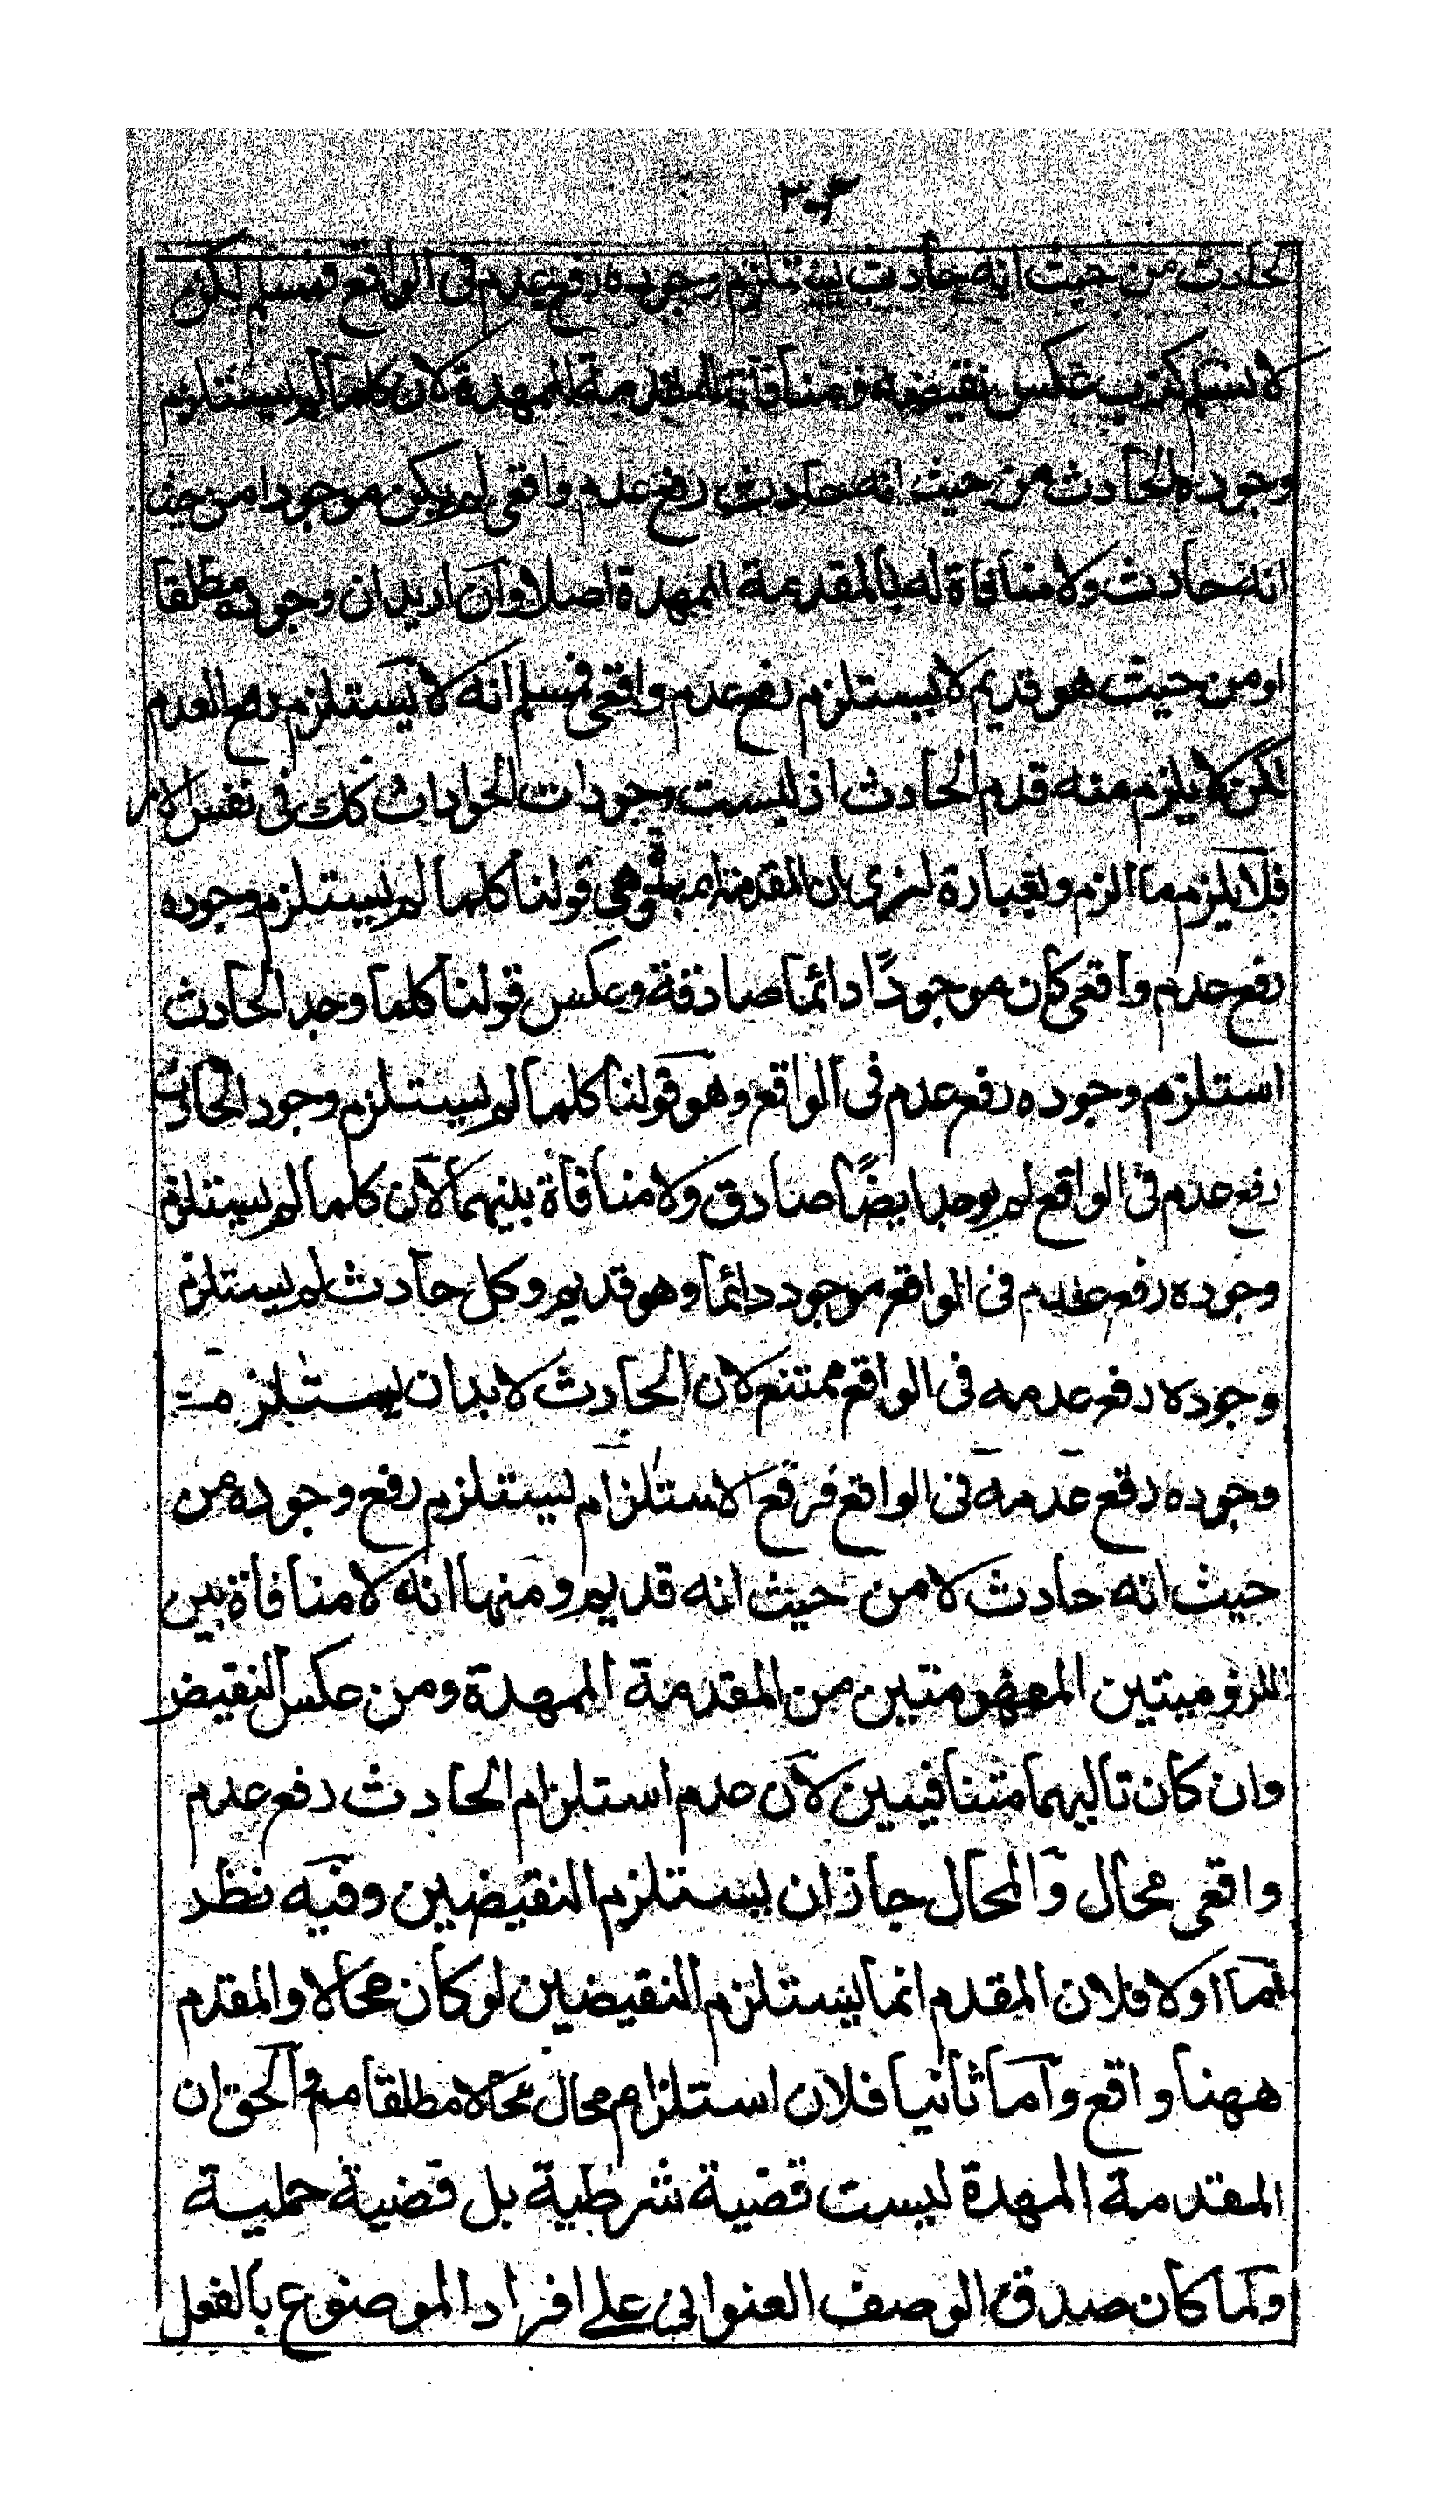 ٣٠٣
الحادث من حيث انه حادث يستلزم وجوده رفع عدم فى الواقع فمسلم لكن
لا نسلم كذب عكس نقيضه ومنافاته للمقدمة الممهدة لان كلما لم يستلزم
وجود الحادث من حيث انه حادث رفع عدم واقعى لم يكن موجودا من حيث
انه حادث ولا منافاة له بالمقدمة الممهدة اصلا وان اريد ان وجوده مطلقا
او من حيث هو قديم لا يستلزم رفع عدم واقعى فمسلم انه لا يستلزم رفع العدم
لكن لا يلزم منه قدم الحادث اذ ليست وجودات الحوادث كك فى نفس الامر
فلا يلزم ما الزم وبعبارة اخرى ان المقدمة الممهدة وهى قولنا كلما لم يستلزم وجوده
رفع عدم واقعى كان موجودًا دائما صادقة وعكس قولنا كلما وجد الحادث
استلزم وجوده رفع عدم فى الواقع وهو قولنا كلما لم يستلزم وجود الحادث
رفع عدم فى الواقع لم يوجد ايضًا صادق ولا منافاة بينهما لان كلما لم يستلزم
وجوده رفع عدم فى الواقع موجود دائما وهو قديم وكل حادث لم يستلزم
وجوده رفع عدمه فى الواقع ممتنع لان الحادث لا بد ان يستلزم
وجوده رفع عدمه فى الواقع فرفع الاستلزام يستلزم رفع وجوده من
حيث انه حادث لا من حيث انه قديم ومنها انه لا منافاة بين
اللزوميتين المفهومتين من المقدمة الممهدة ومن عكس النقيض
وان كان تاليهما متنافيين لان عدم استلزام الحادث رفع عدم
واقعى محال والمحال جاز ان يستلزم النقيضين وفيه نظر
اما اولا فلان المقدم انما يستلزم النقيضين لو كان محالا والمقدم
ههنا واقع واما ثانيا فلان استلزام محال محالا مطلقا مم والحق ان
المقدمة المهدة ليست قضية شرطية بل قضية حملية
ولما كان صدق الوصف العنوانى على افراد الموضوع بالفعل